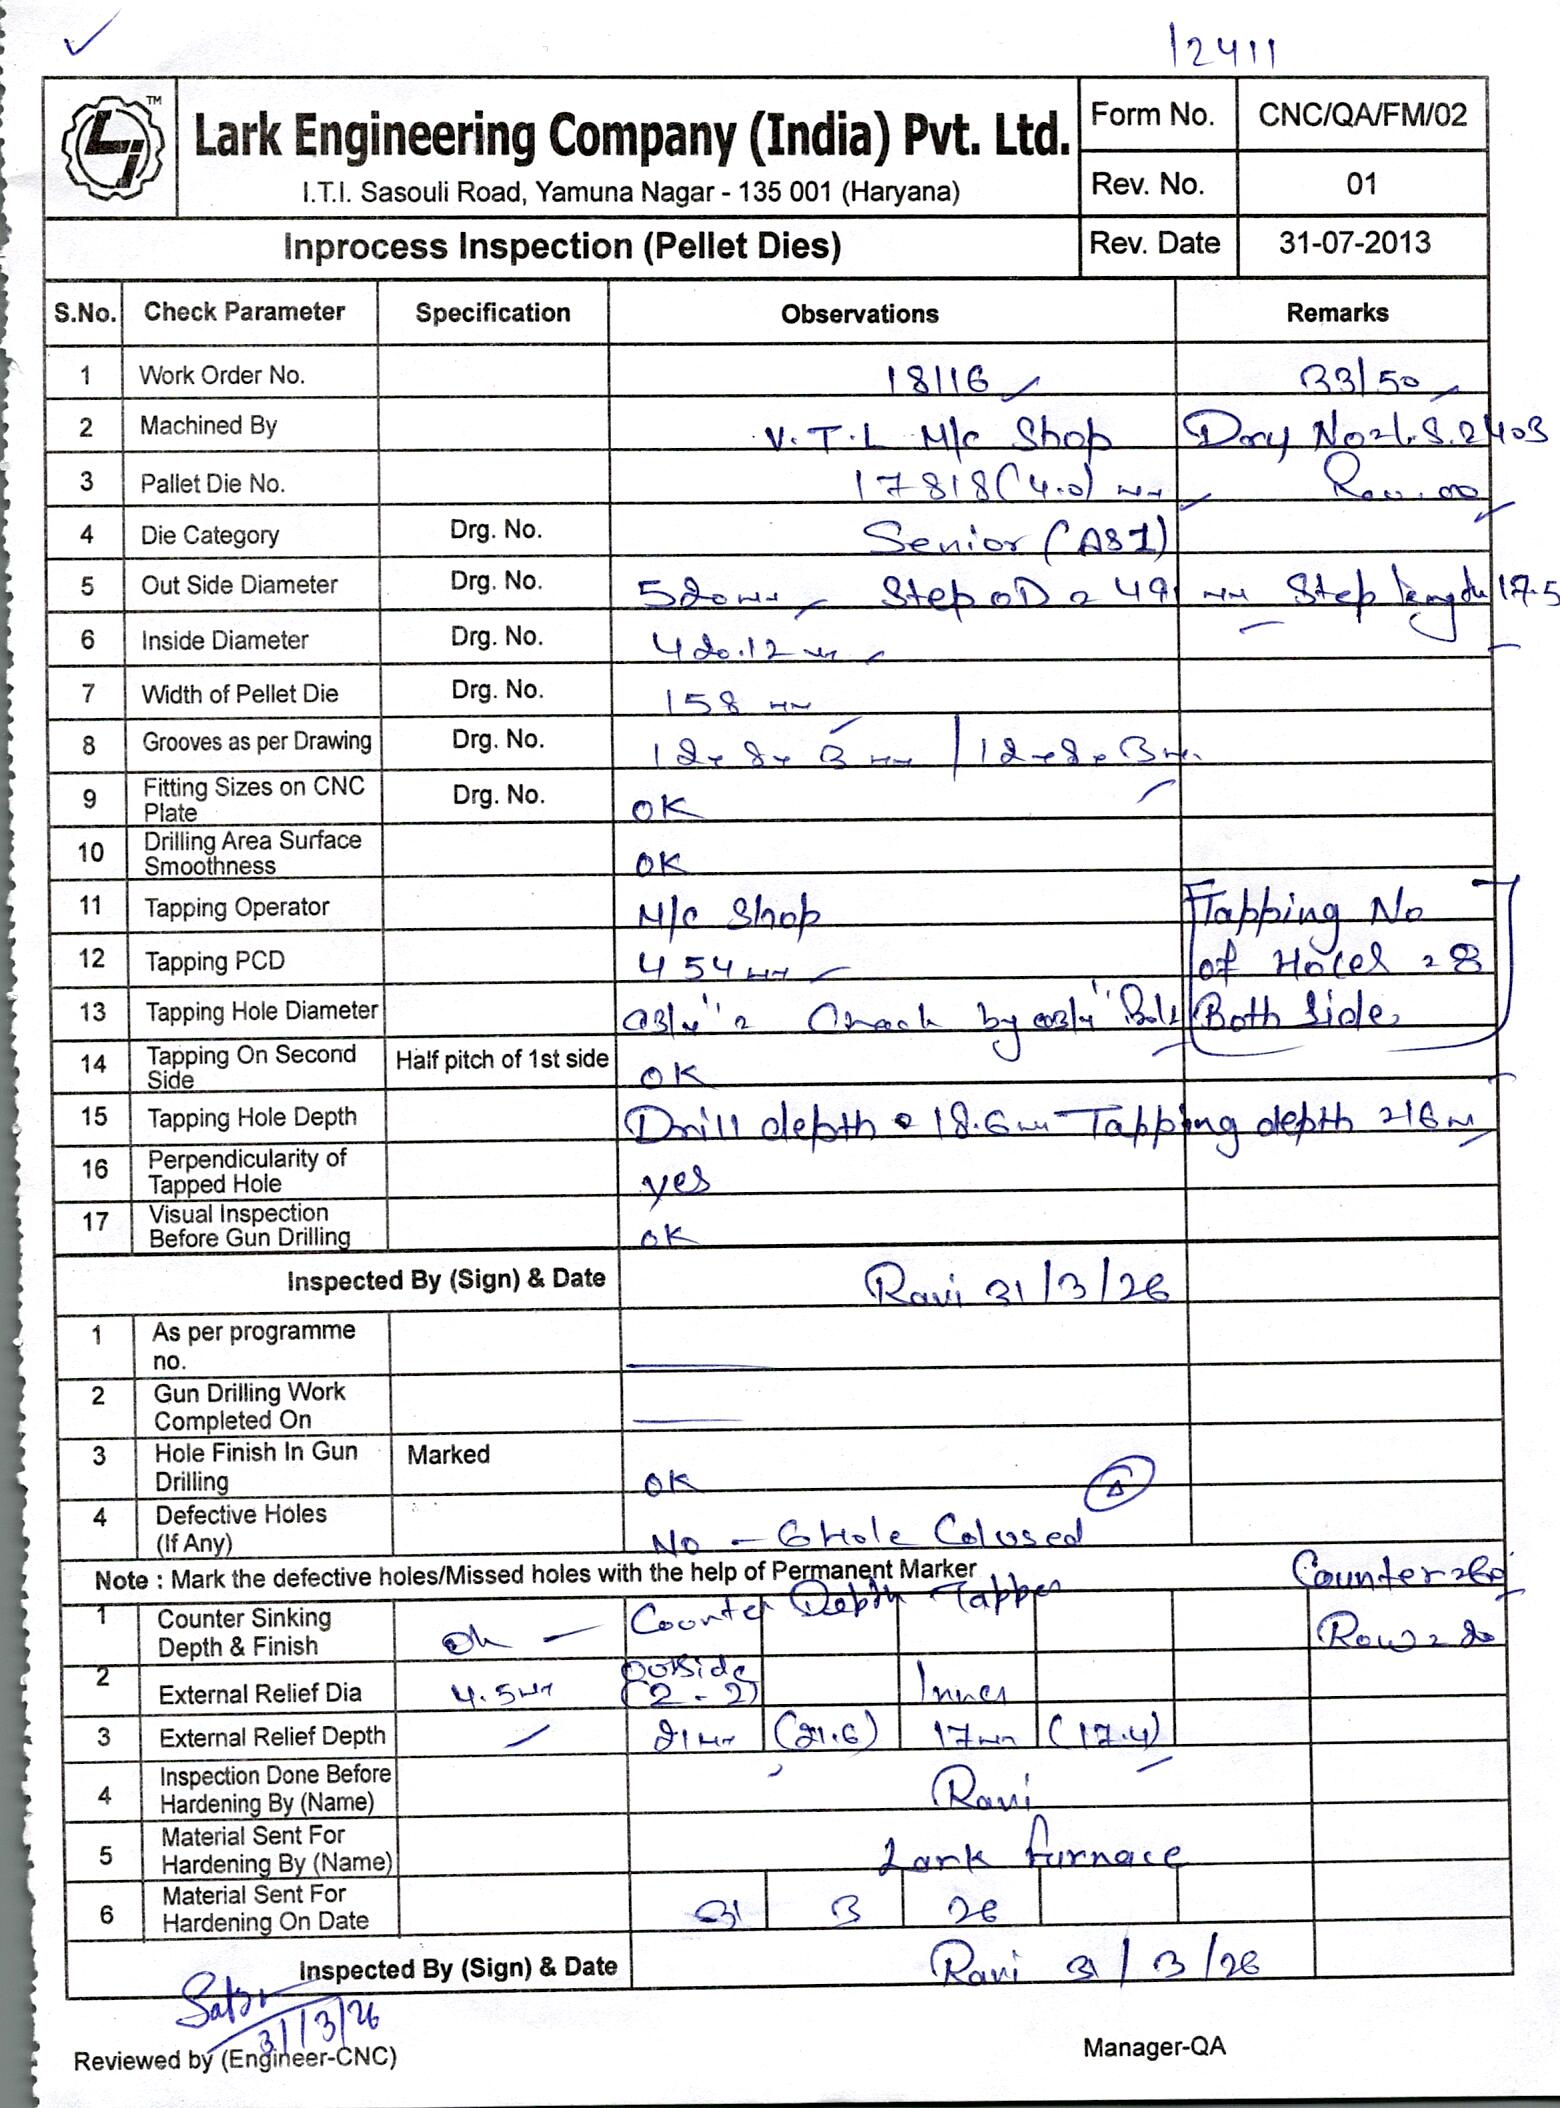 12411
TM
Lark Engineering Company (India) Pvt. Ltd.
I.T.I. Sasouli Road, Yamuna Nagar - 135 001 (Haryana)
Form No. CNC/QA/FM/02
Rev. No. 01
Inprocess Inspection (Pellet Dies)
Rev. Date 31-07-2013
S.No. Check Parameter Specification Observations Remarks
1 Work Order No. 18116 33/50
2 Machined By V.T.L M/c Shop
3 Pallet Die No. 17818 (4.0) mm Rev. 00
4 Die Category Drg. No. Senior (AS1)
5 Out Side Diameter Drg. No. 520mm Step OD = 491 mm Step length 17.5
6 Inside Diameter Drg. No. 420.12 mm
7 Width of Pellet Die Drg. No. 158 mm
8 Grooves as per Drawing Drg. No. 12x8x3 mm / 12x8x3 mm
9 Fitting Sizes on CNC Plate Drg. No. OK
10 Drilling Area Surface Smoothness OK
11 Tapping Operator M/c Shop Tapping No
12 Tapping PCD 454mm of Holes = 8
13 Tapping Hole Diameter 3/4" = Check by 3/4" Bolt Both Side
14 Tapping On Second Side Half pitch of 1st side OK
15 Tapping Hole Depth Drill depth = 18.6mm Tapping depth = 16m
16 Perpendicularity of Tapped Hole yes
17 Visual Inspection Before Gun Drilling OK
Inspected By (Sign) & Date Ravi 31/3/26
1 As per programme no.
2 Gun Drilling Work Completed On
3 Hole Finish In Gun Drilling Marked OK
4 Defective Holes (If Any) No - 6 Hole Colused
Note : Mark the defective holes/Missed holes with the help of Permanent Marker
1 Counter Sinking Depth & Finish Ok Counter Depth Tapper Row = 20
2 External Relief Dia 4.5mm Outside (2-2) Inner
3 External Relief Depth 21mm (21.6) 17mm (17.4)
4 Inspection Done Before Hardening By (Name) Ravi
5 Material Sent For Hardening By (Name) Lark furnace
6 Material Sent For Hardening On Date 31 3 26
Inspected By (Sign) & Date Ravi 31/3/26
31/3/26
Reviewed by (Engineer-CNC) Manager-QA